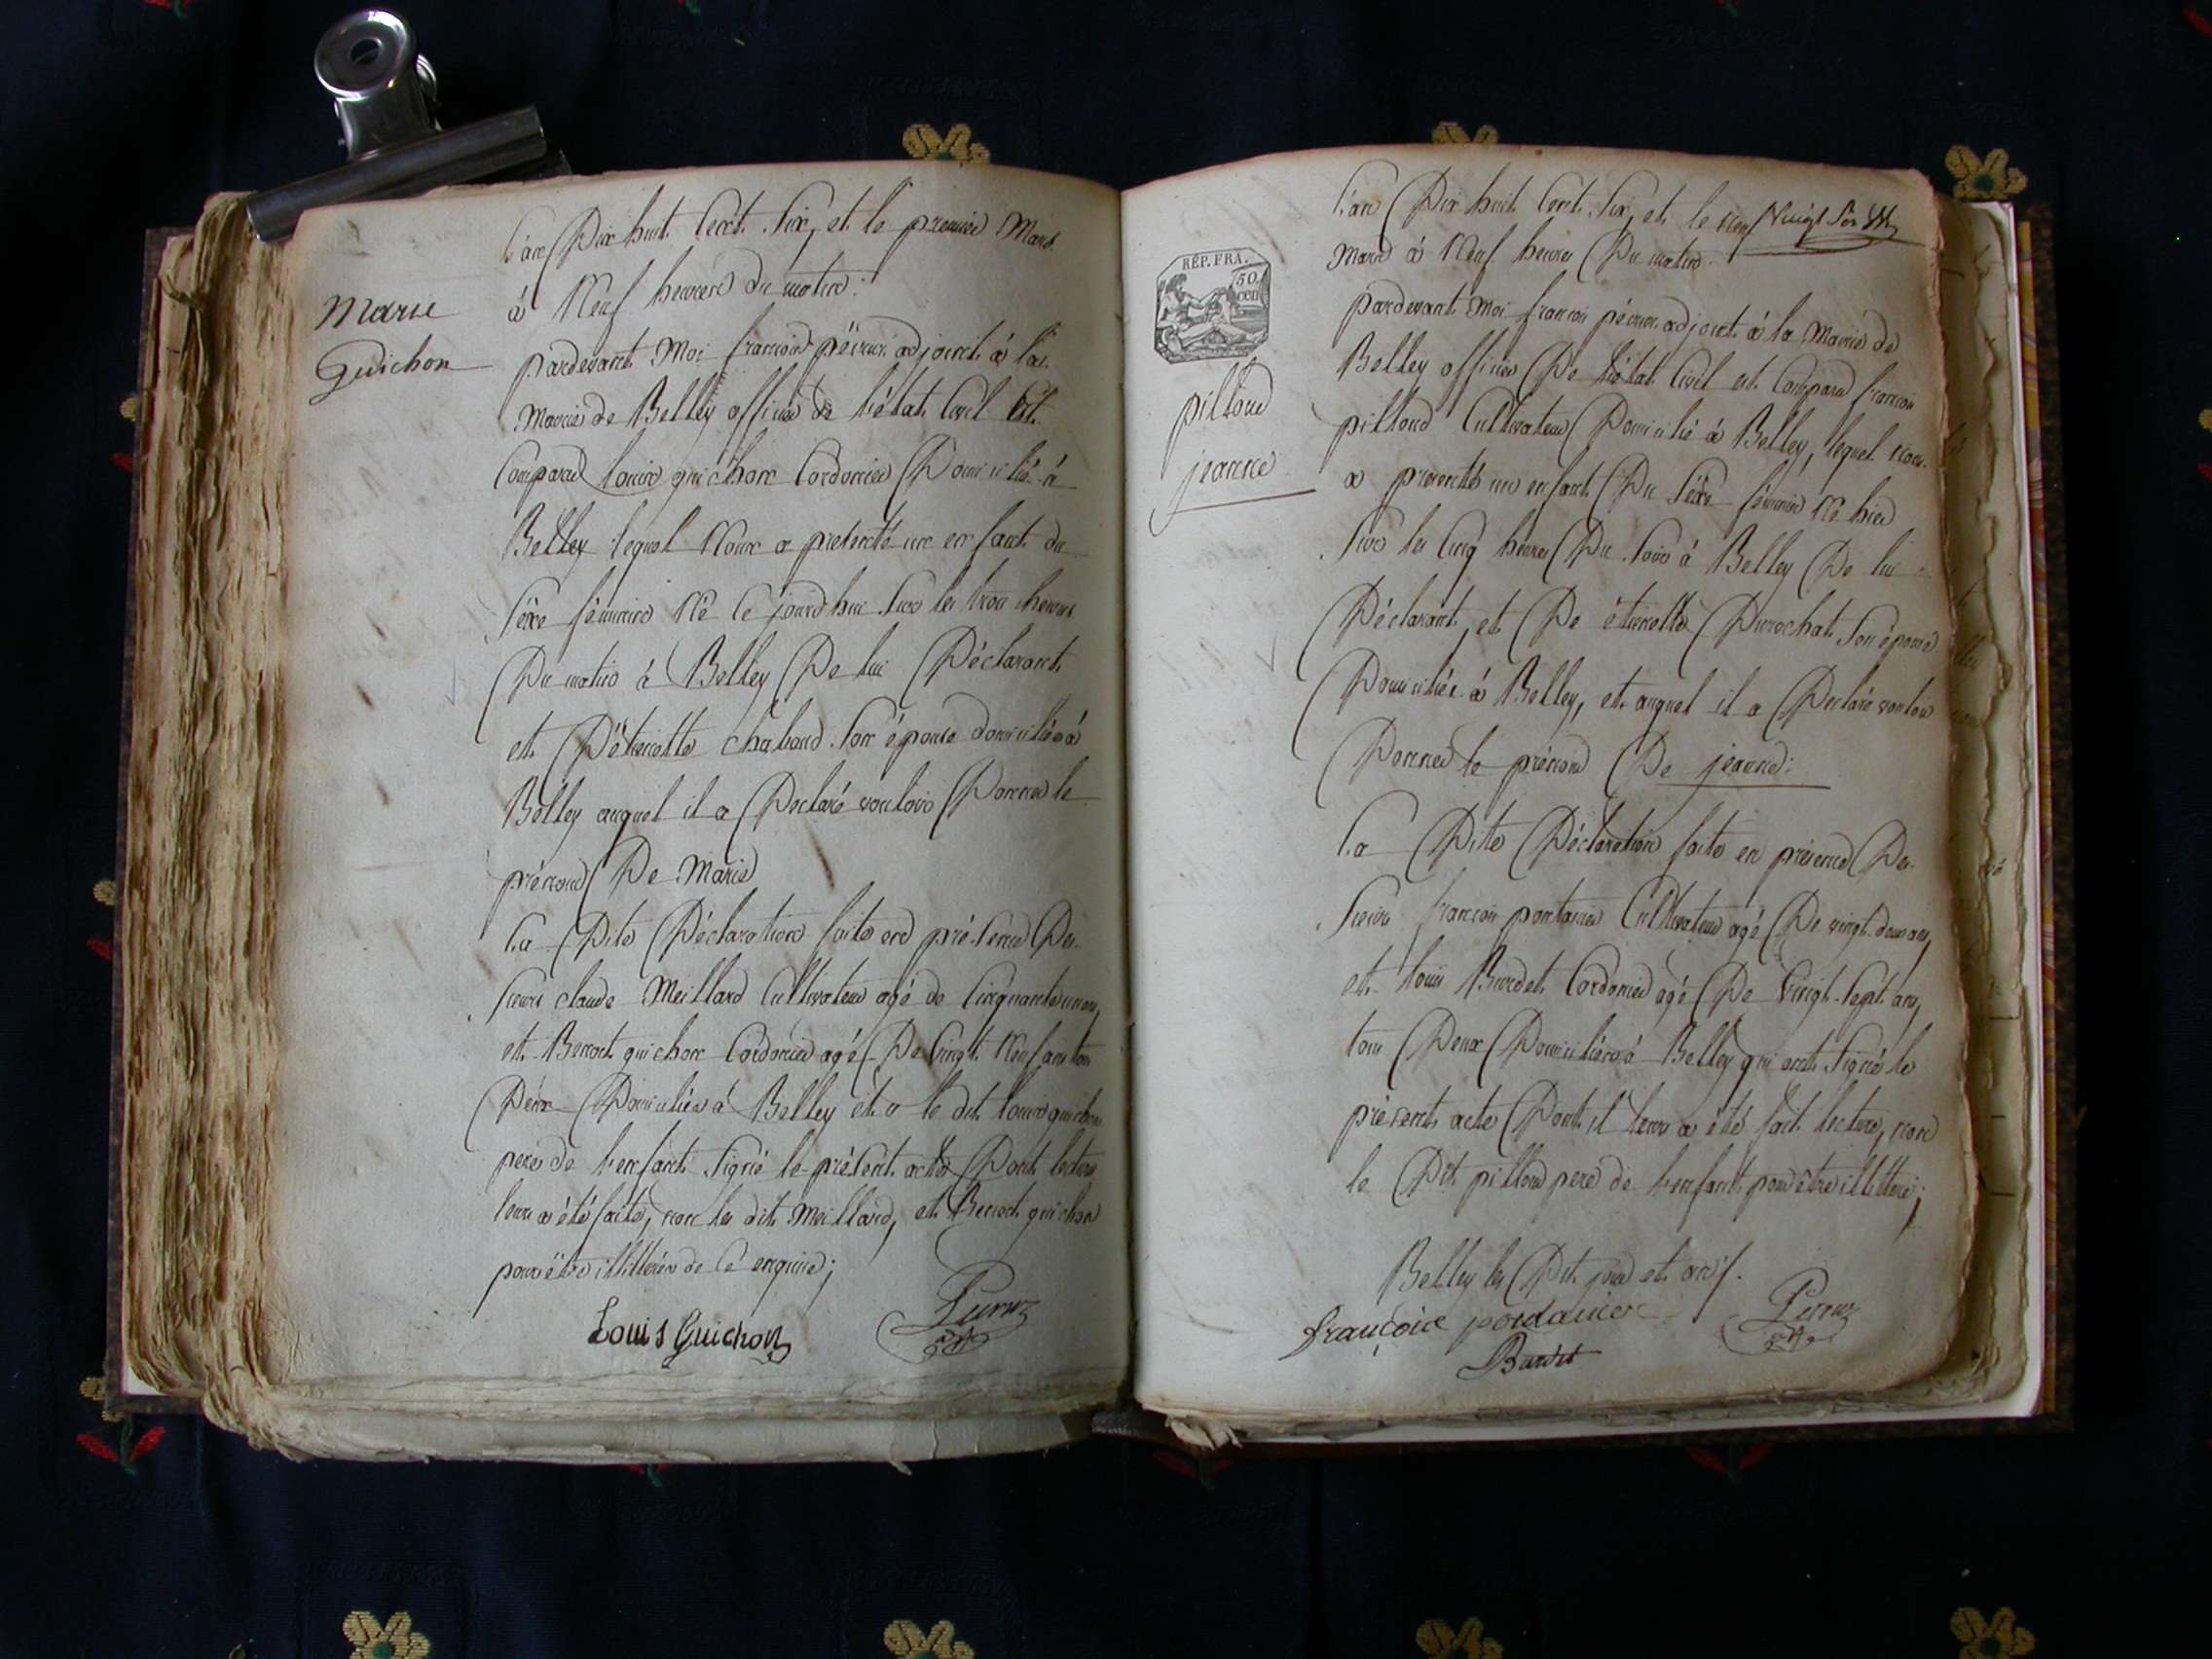 L'an Dix huit Cent Six, et le premier Mars
à Neuf heures du matin:
Marie
Guichon
pardevant Moi françois péruz adjoint à la
Mairie de Belley officier de l'état Civil Est
Comparu Louis guichon Cordonier Domicilié à
Belley lequel Nous a présenté un enfant du
Séxe féminin Né Ce jourdhui Sur les trois heures
Du matin à Belley De lui Déclarant
et D'étiennette chaboud Son épouse domiciliée à
Belley auquel il a Declaré vouloir Donner le
prénom De Marie
La Dite Déclaration faite en présence Des
Sieurs claude Meillard Cultivateur agé de Cinquante un ans,
et Benoit guichon Cordonier agé De Vingt Neuf ans tous
Deux Domiciliés à Belley et le dit Louis guichon
pere de l'enfant Signé le présent acte Dont lecture
leur a été faite, non les dit Meillard, et Benoit guichon
pour être illittérés de Ce enquis;
Louis Guichon
L'an Dix huit Cent Six, et le Vingt Six
Mars à Neuf heures Du matin.
RÉP. FRA.
50
cen
pilloud
jeanne
pardevant Moi françois péruz adjoint à la Mairie de
Belley officier De l'état Civil est Comparu françois
pilloud Cultivateur Domicilié à Belley, lequel nous
a presenté un enfant Du Séxe féminin Né hier
Sur les Cinq heures Du Soir à Belley De lui
Déclarant, et De étiennette Durochat Son épouse
Domiciliée à Belley, et auquel il a Declaré vouloir
Donner le prénom De jeanne:
La Dite Déclaration faite en présence Des
Sieurs françois pontanier Cultivateur agé De vingt-deux ans,
et Louis Burdet Cordonier agé De Vingt-Sept ans,
tous Deux Domiciliés à Belley qui ont Signé le
présent acte Dont il leur a été fait lecture, non
le Dit pilloud pere de l'enfant pour être illittéré;
Belley les Dit jour et an
françois
Burdet